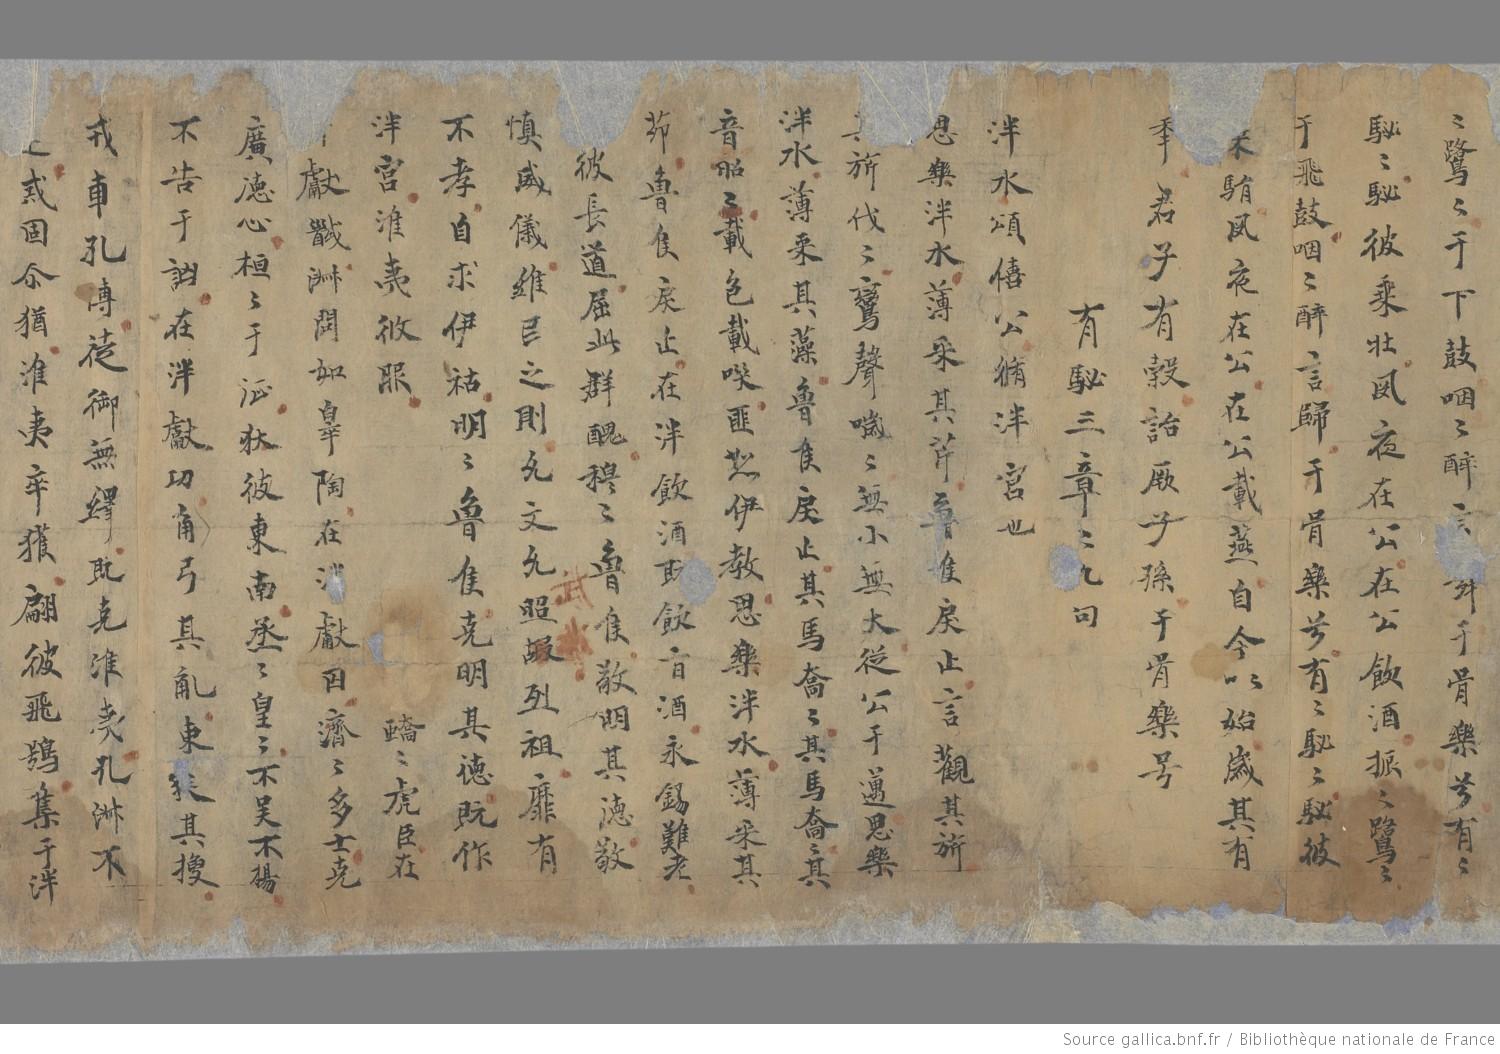 〻鷺〻于下鼓咽〻醉言儛于胥樂兮有〻
駜〻駜彼乘壯夙夜在公在公飲酒振〻鷺〻
于飛鼓咽〻醉言歸于胥樂兮有〻駜〻駜彼
乘駽夙夜在公在公載燕自今以始歲其有
君子有穀詒厥子孫于胥樂兮
有駜三章〻九句
泮水頌僖公脩泮宮也
思樂泮水薄采其芹魯侯戾止言觀其旂
其旂伐〻鸞聲噦〻無小無大從公于邁思樂
泮水薄采其藻魯侯戾止其馬喬〻其馬喬〻其
音昭〻載色載咲匪怒伊教思樂泮水薄采其
茆魯侯戾止在泮飲酒既飲旨酒永錫難老
彼長道屈此群醜穆〻魯侯敬明其德敬
慎威儀維民之則允文允武昭假烈祖靡有
不孝自求伊祜明〻魯侯克明其德既作
泮宮淮夷攸服矯〻虎臣在
獻馘淑問如皐陶在泮獻囚濟〻多士克
廣德心桓〻于征狄彼東南烝〻皇〻不吴不揚
不告于訩在泮獻功角弓其觓束矢其搜
戎車孔博徒御無繹既克淮夷孔淑不
逆式固尒猶淮夷卒獲翩彼飛鴞集于泮
Source gallica.bnf.fr / Bibliothèque nationale de France